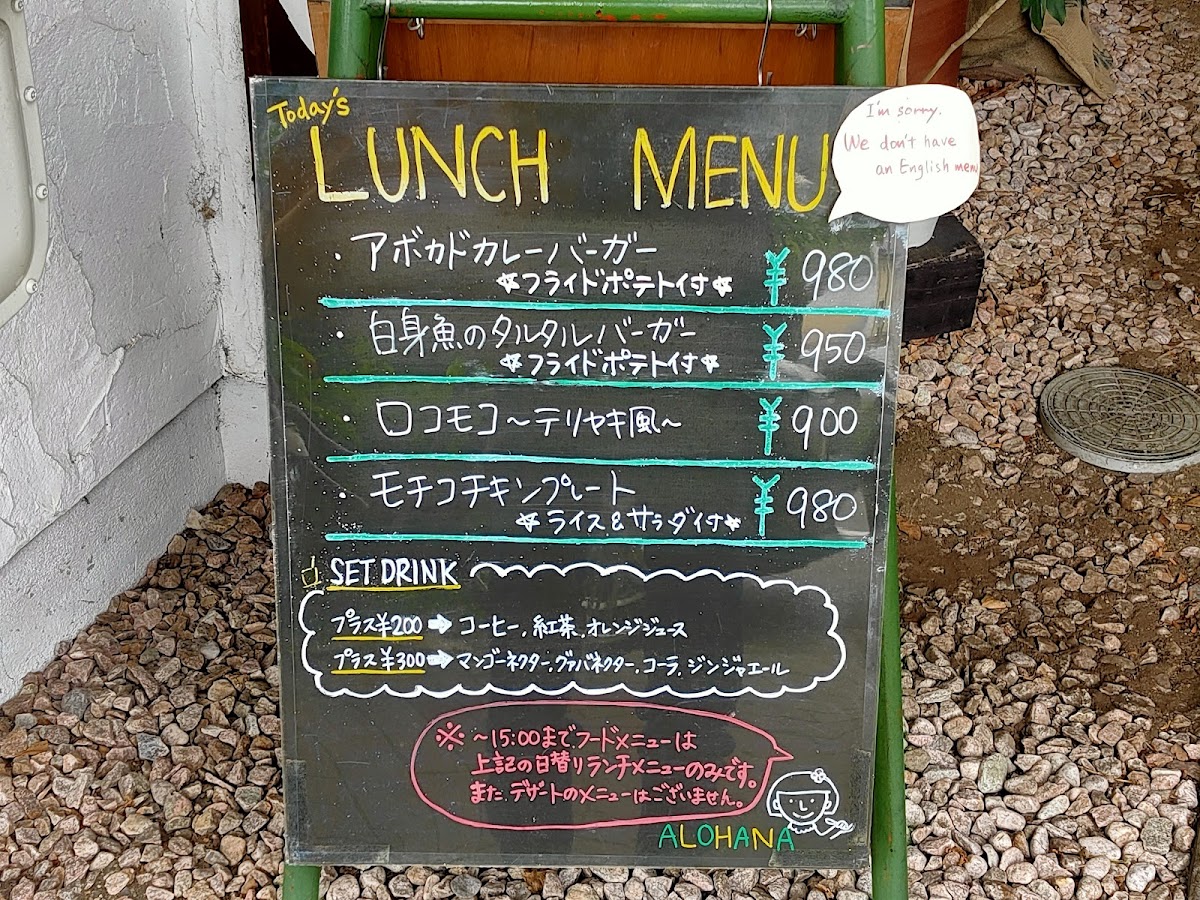 Today's
LUNCH MENU
I'm sorry.
We don't have
an English menu
・アボカドカレーバーガー
☆フライドポテト付☆ ¥980
・白身魚のタルタルバーガー
☆フライドポテト付☆ ¥950
・ロコモコ〜テリヤキ風〜 ¥900
・モチコチキンプレート
☆ライス&サラダ付☆ ¥980
SET DRINK
プラス¥200➡コーヒー,紅茶,オレンジジュース
プラス¥300➡マンゴーネクター,グァバネクター,コーラ,ジンジャエール
※〜15:00までフードメニューは
上記の日替りランチメニューのみです。
また、デザートのメニューはございません。
ALOHANA